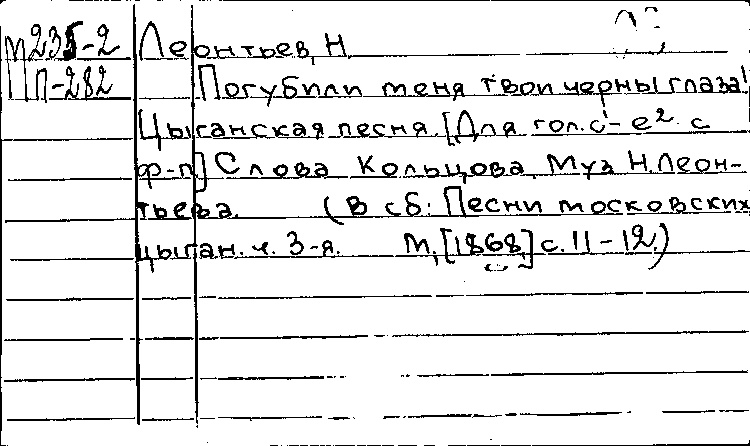 М235-2 Леонтьев, Н.
МП-282 Погубили меня твои черны глаза!
Цыганская песня. [Для гол. c¹-e². с
ф-п] Слова Кольцова. Муз. Н. Леон-
тьева. (В сб: Песни московских
цыган. ч. 3-я. М, [1868,] с. 11-12.)